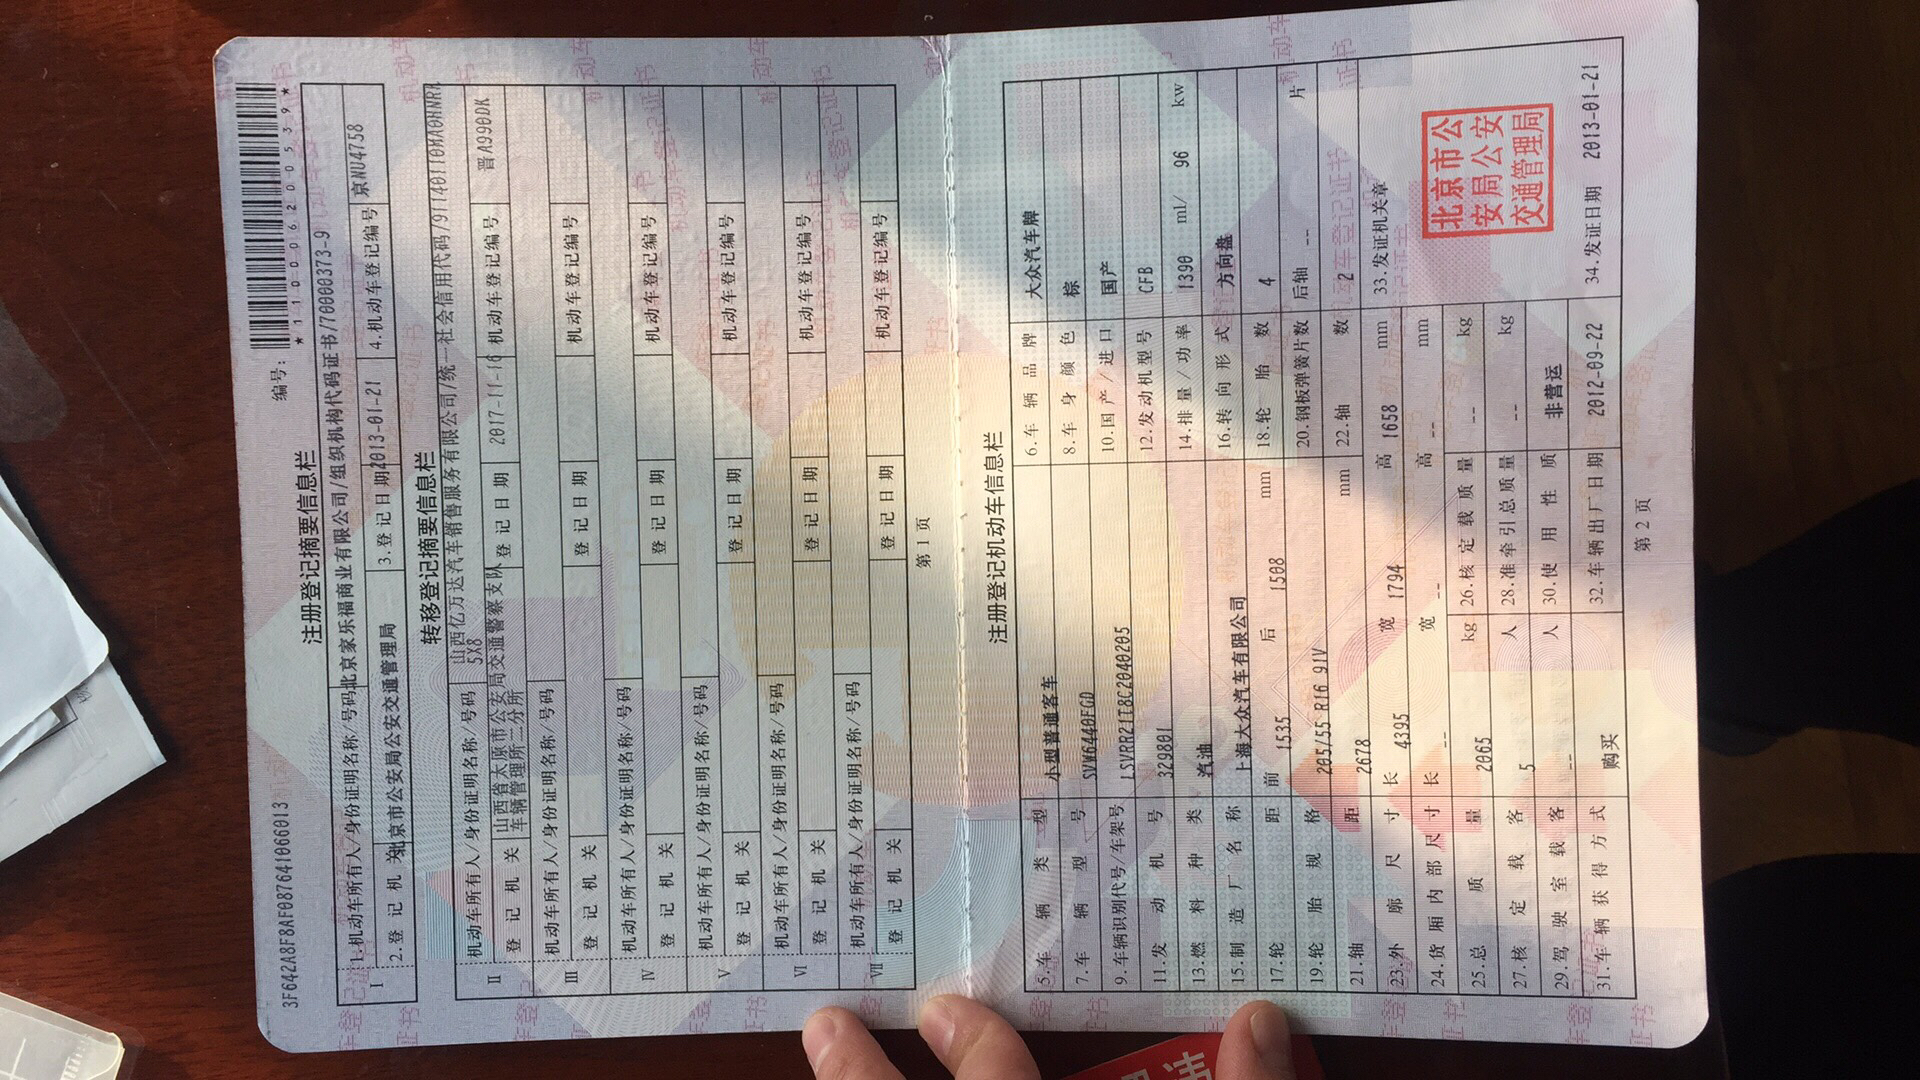 3F642A8F8AF087641066013
编号:
*110006200539*
注册登记摘要信息栏
I 1.机动车所有人/身份证明名称/号码 北京家乐福商业有限公司/组织机构代码证书/70000373-9
2.登记机关 北京市公安局公安交通管理局 3.登记日期 2013-01-21 4.机动车登记编号 京NU4758
转移登记摘要信息栏
II 机动车所有人/身份证明名称/号码 山西亿万达汽车销售服务有限公司/统一社会信用代码/91140110MA0HNR1
5X8
登记机关 山西省太原市公安局交通警察支队车辆管理所二分所 登记日期 2017-11-16 机动车登记编号 晋A990DK
III 机动车所有人/身份证明名称/号码
登记机关 登记日期 机动车登记编号
IV 机动车所有人/身份证明名称/号码
登记机关 登记日期 机动车登记编号
V 机动车所有人/身份证明名称/号码
登记机关 登记日期 机动车登记编号
VI 机动车所有人/身份证明名称/号码
登记机关 登记日期 机动车登记编号
VII 机动车所有人/身份证明名称/号码
登记机关 登记日期 机动车登记编号
第1页
注册登记机动车信息栏
5.车辆类型 小型普通客车 6.车辆品牌 大众汽车牌
7.车辆型号 SVW6440FGD 8.车身颜色 棕
9.车辆识别代号/车架号 LSVRR21T8C2040205 10.国产/进口 国产
11.发动机号 329801 12.发动机型号 CFB
13.燃料种类 汽油 14.排量/功率 1390 ml/ 96 kw
15.制造厂名称 上海大众汽车有限公司 16.转向形式 方向盘
17.轮距 前 1535 后 1508 mm 18.轮胎数 4
19.轮胎规格 205/55 R16 91V 20.钢板弹簧片数 后轴 -- 片
21.轴距 2678 mm 22.轴数 2
23.外廓尺寸 长 4395 宽 1794 高 1658 mm
24.货厢内部尺寸 长 -- 宽 -- 高 -- mm
33.发证机关章
北京市公
安局公安
交通管理局
25.总质量 2065 kg 26.核定载质量 -- kg
27.核定载客 5 人 28.准牵引总质量 -- kg
29.驾驶室载客 -- 人 30.使用性质 非营运
31.车辆获得方式 购买 32.车辆出厂日期 2012-09-22 34.发证日期 2013-01-21
第2页